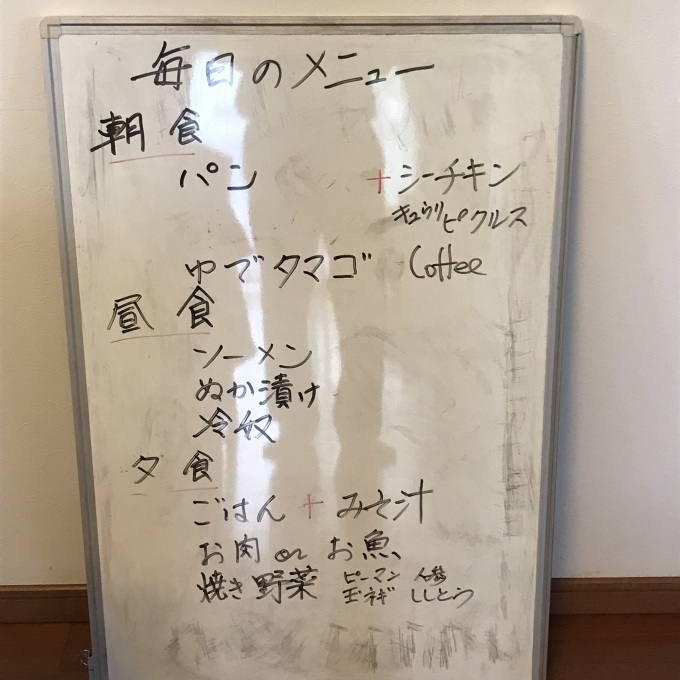 毎日のメニュー
朝食
パン + シーチキン
キュウリピクルス
ゆでタマゴ Coffee
昼食
ソーメン
ぬか漬け
冷奴
夕食
ごはん + みそ汁
お肉 or お魚
焼き野菜 ピーマン 人参
玉ネギ ししとう